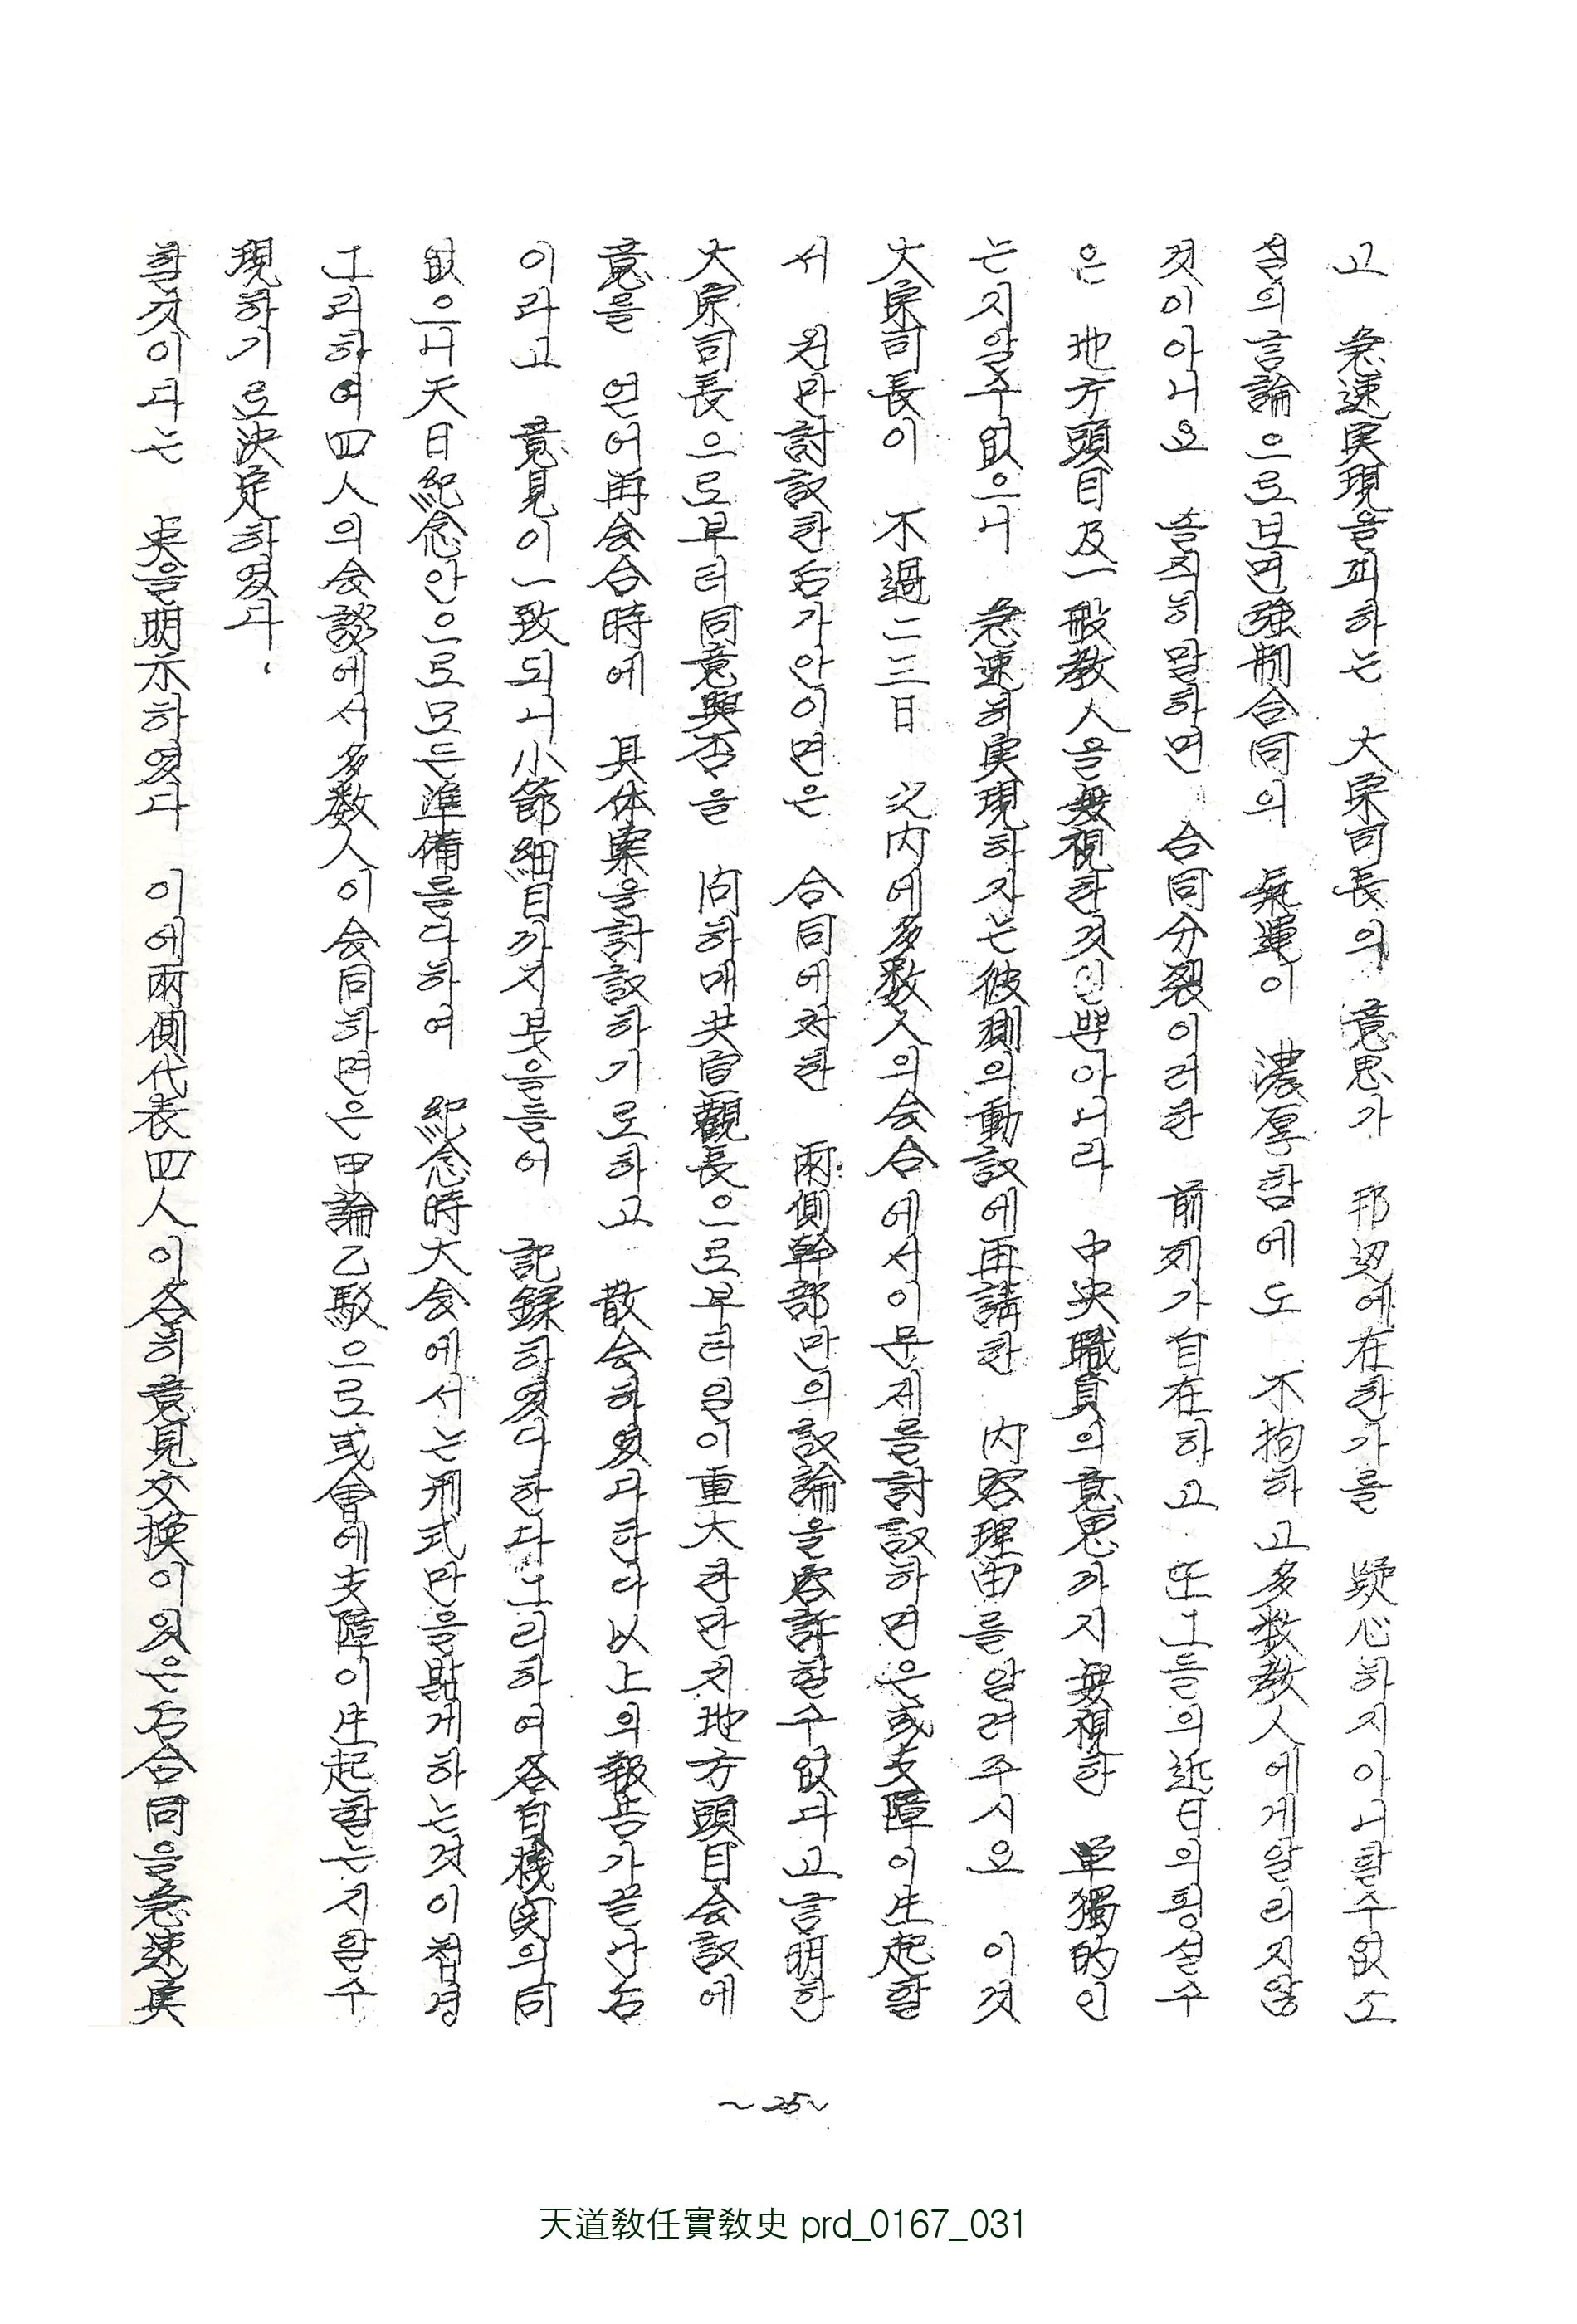 할것이다는 実을明示하였다 이에兩側代表四人이各히意見交換이있은后合同을急速実
現하기로決定하였다.
그리하여四人의会談에서多数人이会同하면은甲論乙駁으로或會에支障이生起할는지알수
없으니天日紀念안으로모든準備를다하여 紀念時大会에서는形式만을 게하는것이첩경
이라고 意見이一致되니小節細目까지붓을들어 記録하였다한다그리하여各自機関의同
意을 얻어再会合時에 具体案을討議하기로하고 散会하였다한다以上의報告가끝나后
大宗司長으로부터同意與否을 问하매共宣觀長으로부터일이重大한만치地方頭目会議에
서 원만討議한后가안이면은 合同에처한 兩側幹部만의議論을容許할수없다고言明하
大宗司長이 不過二三日 之内에多数人의会合에서이문제를討議하면은或支障이生起할
는지알수없으니 急速히実現하자는彼側의動議에再請한 内容理由를알려주시오 이것
은 地方頭目及一般教人을無視한것인뿐아니라 中央職員의意思까지無視하 單獨的인
것이아니요 솔직히말하면 合同分裂이러한 前제가自在하고 또그들의近日의횡설수
설의言論으로보면強制合同의 氣運이 濃厚함에도 不拘하고多数教人에게알리지않
고 急速実現을피하는 大宗司長의 意思가 邦辺에在한가를 疑心하지아니할수없소
~25~
天道敎任實敎史 prd_0167_031